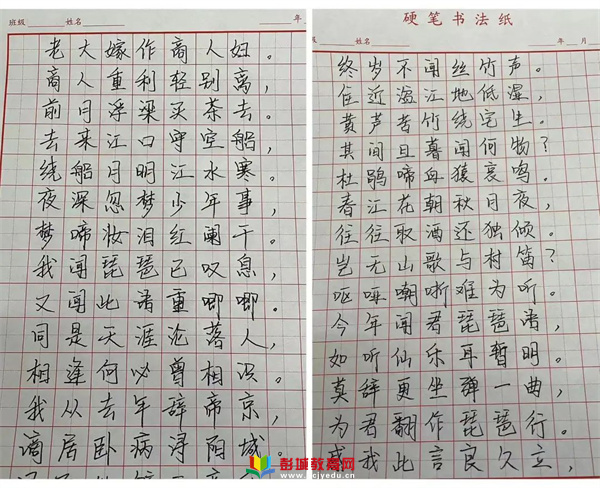 班级 姓名 年
老大嫁作商人妇。
商人重利轻别离，
前月浮梁买茶去。
去来江口守空船，
绕船月明江水寒。
夜深忽梦少年事，
梦啼妆泪红阑干。
我闻琵琶已叹息，
又闻此语重唧唧。
同是天涯沦落人，
相逢何必曾相识。
我从去年辞帝京，
谪居卧病浔阳城。
硬笔书法纸
级 姓名 年 月
终岁不闻丝竹声。
住近湓江地低湿，
黄芦苦竹绕宅生。
其间旦暮闻何物？
杜鹃啼血猿哀鸣。
春江花朝秋月夜，
往往取酒还独倾。
岂无山歌与村笛？
呕哑嘲哳难为听。
今年闻君琵琶语，
如听仙乐耳暂明。
莫辞更坐弹一曲，
为君翻作琵琶行。
感我此言良久立，
彭城教育网